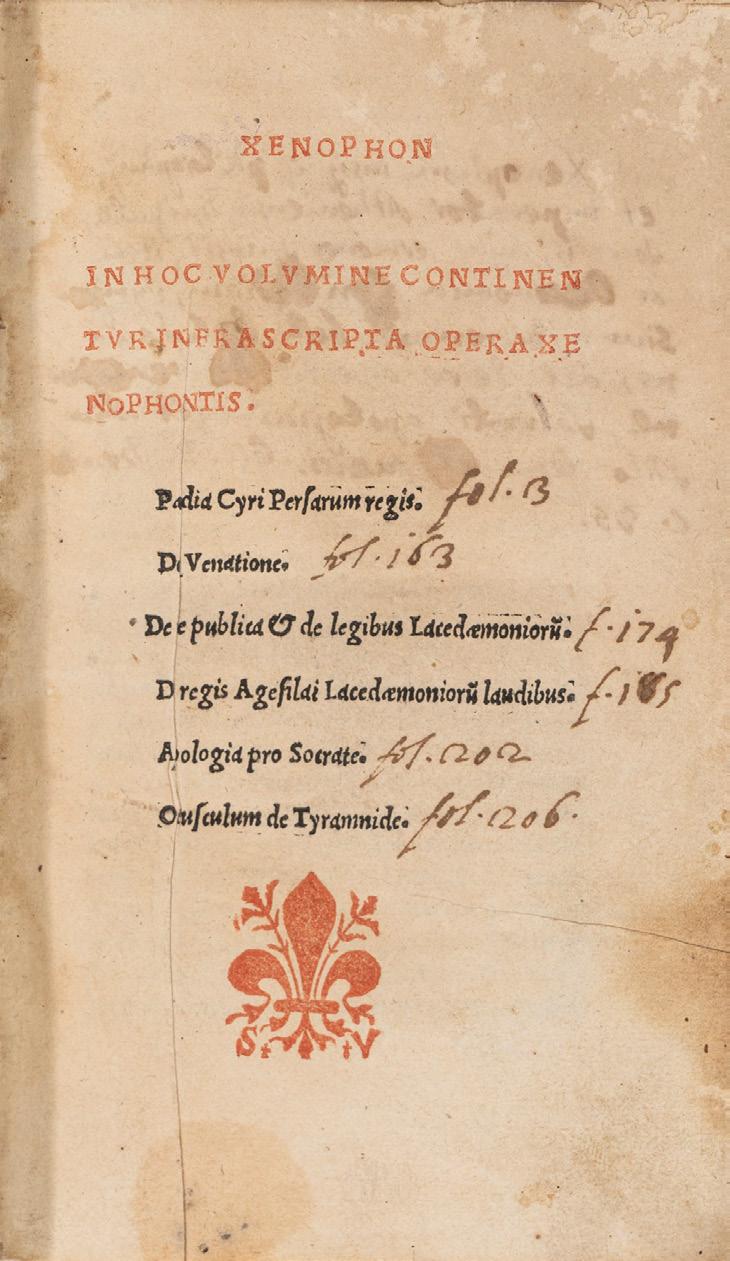 XENOPHON
IN HOC VOLVMINE CONTINEN
TVR INFRASCRIPTA OPERA XE
NOPHONTIS.
Pædia Cyri Perſarum regis. fol. 3
D Venatione. fol. 163
De e publica & de legibus Lacedæmoniorũ. f. 174
D regis Ageſilai Lacedæmoniorũ laudibus. f. 185
Apologia pro Socrate. fol. 202
Opuſculum de Tyramnide. fol. 206.
S V